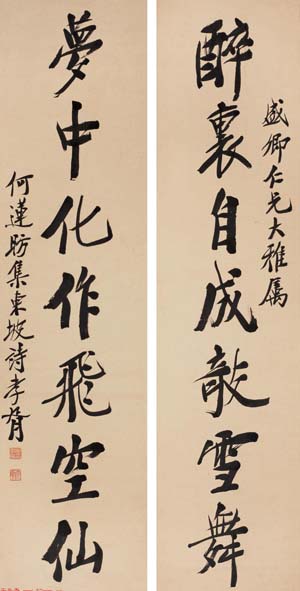 醉裏自成敲雪舞
盛卿仁兄大雅属
夢中化作飛空仙
何蓮昉集東坡詩孝胥